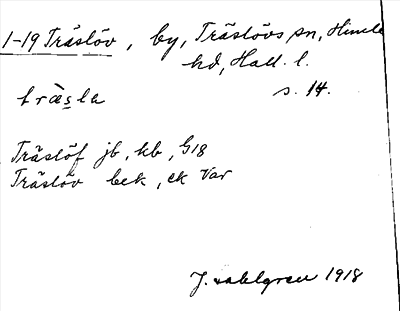 1-19 Träslöv, by, Träslövs sn, Himle
hd, Hall. l.
träsla s. 14.
Träslöf jb, kb, G18
Träslöv bek, ek Var
J. Sahlgren 1918